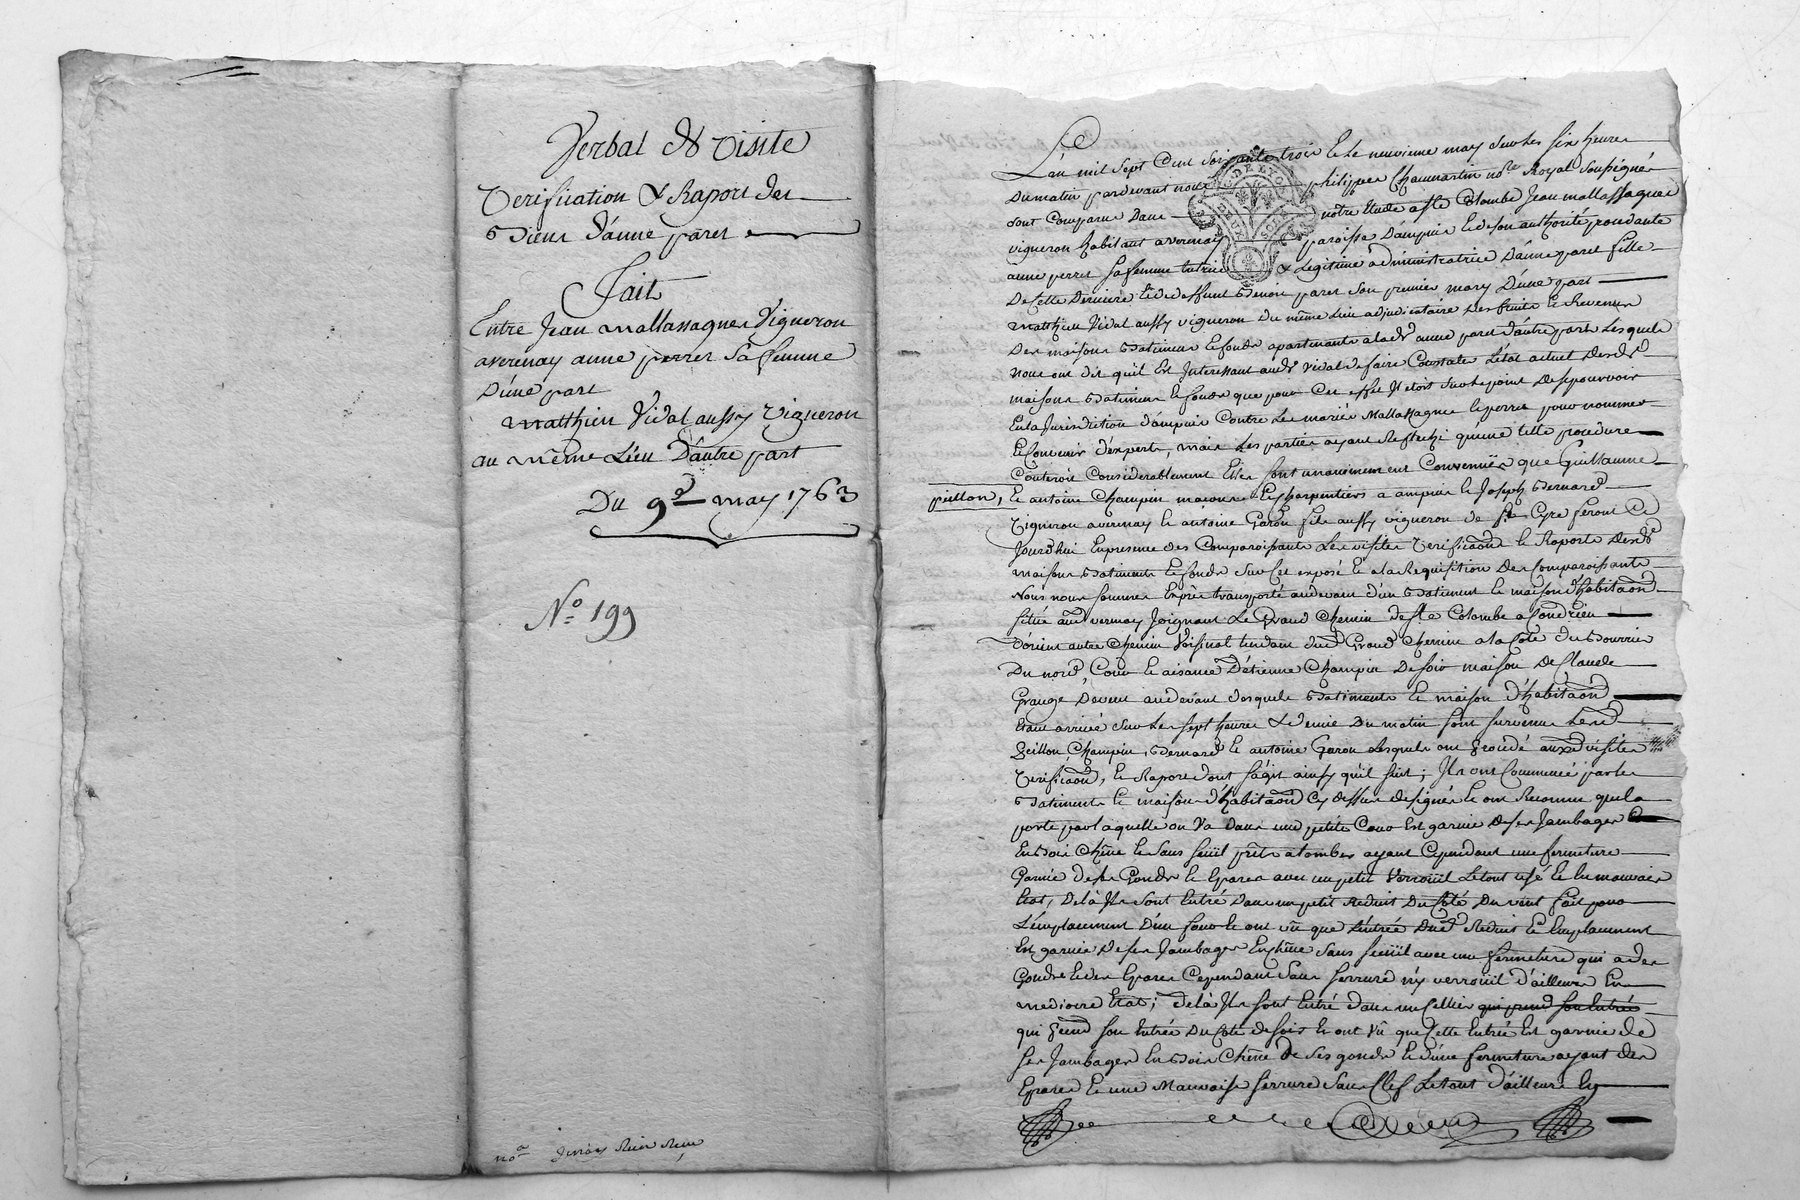 Verbal de visite
Verification & Raport des
Biens d'anne paret
Fait
Entre Jean mallassagnes Vigneron
averenay anne perret sa femme
D'une part
matthieu Vidal aussy vigneron
au même Lieu D'autre part
Du 9e may 1763
No 199
L'an mil sept Cent soixante trois & le neuvieme may sur les six heures
Du matin pardevant nous philippes Chaumartin nore Royal soussigné
sont Comparus Dans notre Etude a ste Colombe Jean mallassagnes
vigneron habitant a verenay paroisse D'ampuis & de son authorité procedante
anne perret sa femme tutrice & Legitime administratrice D'anne paret fille
De cette Derniere & de deffunt Benoit paret son premier mary D'une part
matthieu Vidal aussy vigneron Du même Lieu adjudicataire des fruits & Revenus
Des maisons Batiments & fonds apartenants a lade anne paret d'autre part Lesquels
Nous ont dit quil Est Interessant audt Vidal de faire Constater L'etat actuel desds
maisons Batiments & fonds que pour Cet effet Il etoit sur le point de se pourvoir
En la Jurisdiction d'ampuis Contre Les mariés Mallassagnes & perret pour nommer
& Convenir d'experts, mais Les parties ayant Reflechi qu'une telle procedure
Couteroit Considerablement Elles sont unanimement Convenües que Guillaume
pitton, & antoine Champin macons & Charpentiers a ampuis & Joseph Bernard
Vigneron averenay & antoine Garon fils aussy vigneron de st Cyr feront Ce
Jourd'hui En presence des Comparoissants Les visites Verificaõn & Raports Desds
maisons Batiments & fonds sur Cet exposé & a la Requisition Des Comparoissants
Nous nous sommes Exprès transporté audevant d'un Batiment & maison d'habitaõn
sitüé aud verenay Joignant Le Grand Chemin de ste Colombe a Condrieu
D'orient autre Chemin Voisinal tendant dud Grand Chemin a la Cote du
Du nord, Cour & aisance D'etienne Champin De soir maison De Claude
Grange De vent audevant desquels Batiments & maison d'habitaõn
Etant arrivé sur les sept heures & demie Du matin sont survenus Lesd
pitton, Champin, Bernard & antoine Garon Lesquels ont procédé auxd visites
Verificaõn, & Raport dont s'agit ainsy qu'il suit; Ils ont Commencé par les
Batiments & maison d'habitaõn Cy dessus designés & ont Reconnu que la
porte par laquelle on Va dans une petite Cour Est garnie de ses Jambages
En Bois Chêne & sans seüil prêts a tomber ayant Cependant une fermeture
Garnie de ses Gonds & Epares avec un petit Verroüil Le tout usé & En mauvais
Etat, De là Ils sont Entré Dans un petit Reduit Du Coté Du vent fait pour
L'emplacement D'un four & ont vû que L'entrée Dud Reduit & Emplacement
Est garnie De ses Jambages En chêne sans seüil avec une fermeture qui a des
Gonds & des Epares Cependant sans serrure n'y verroüil d'ailleurs En
mediocre Etat; De là Ils sont Entré dans un Cellier qui prend son Entrée
qui prend son Entrée Du Coté de soir & ont Vû que Cette Entrée Est garnie de
ses Jambages En Bois Chêne de ses gonds & d'une fermeture ayant des
Epares & une Mauvaise serrure sans Clef Le tout d'ailleurs En